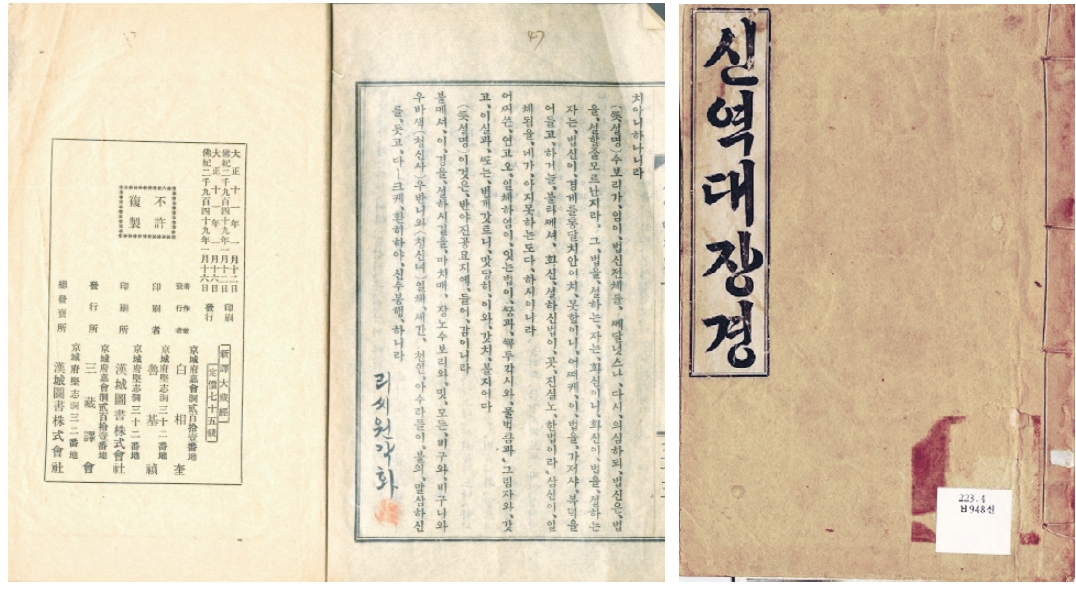 신역대장경
223.4
ㅂ948신
47
치아니하나니라
(笑,설명)수보리가,임이,법신전체를,깨달넛스나,다시,의심하되,법신은,법
을,설할줄모르난지라,그,법을,설하는,자는,화신이니,화신이,법을,설하는
자는,법신이,경계를통달치안이치,못함이니,어찌케,이,법을,가저샤,복덕을
어들고,하거늘,불타께셔,화신,설하신법이,곳,진실노,한법이라,삼신이,일
체됨을,네가,아지못하는도다,하시이니라
어찌쓴,연고오,일체하염이,잇는법이,꿈과,꼭두각시와,물법큼과,그림자와,갓
고,이실과,또는,번개갓흐니,맛당히,이와,갓치,볼지어다
(笑,설명)이것은,반야진공묘지에,들어,감이니라
불께셔,이,경을,설하시길을,마치매,장노수보리와,밋,모든,비구와,비구니와
우바새(청신사)우반니와(청신녀)일체,세간,천인,아수라들이,불의,말삼하신
를,듯고,다—크게,환히하야,신수봉행,하니라
리씨원각화
大正十一年一月十二日 印刷
佛紀二千九百四十九年一月十二日
大正十一年一月十六日 發行
佛紀二千九百四十九年一月十六日
不許
複製
新譯大藏經
定價七十五錢
京城府嘉會洞貳百拾壹番地
著作兼發行者 白相奎
京城府堅志洞三十二番地
印刷者 魯基禎
京城府堅志洞三十二番地
印刷所 漢城圖書株式會社
京城府嘉會洞貳百拾壹番地
發行所 三藏譯會
京城府堅志洞三二番地
總發賣所 漢城圖書株式會社